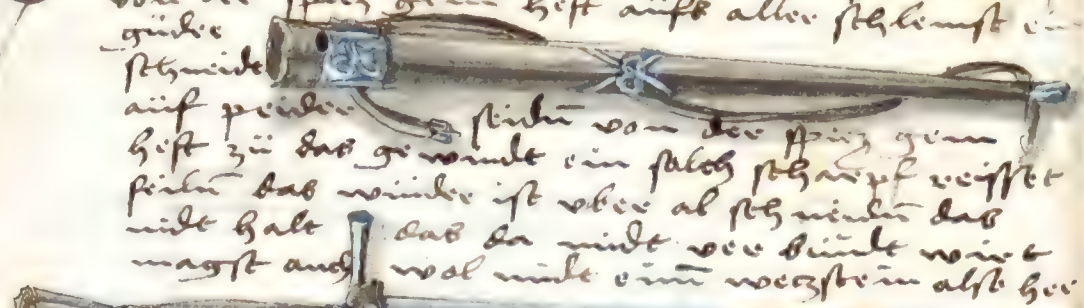 von der spicz gem heft aüfs aller schlemst ein
güder
schneidt
aüf peider seidn̄ von der spicz gem
heft zü das gewindt ein solch scharpf reisset
feiln̄ das winder ist vber al schneidn̄ das
nidt halt das da midt ver bindt wirt
magst auch wol midt einn̄ weczstein also her